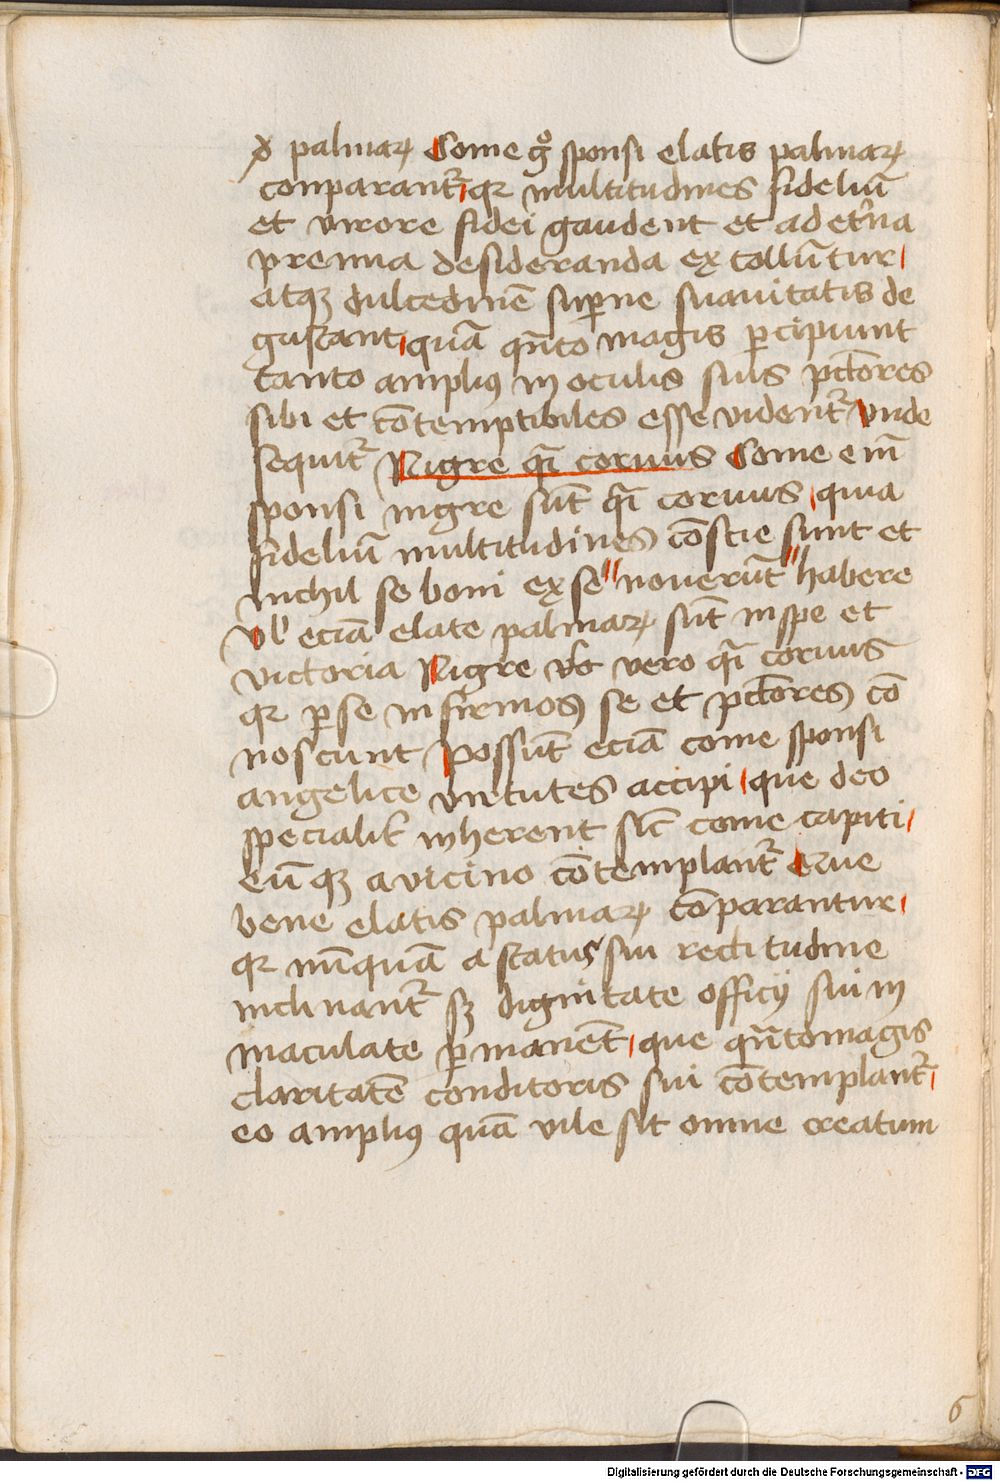 palmaꝝ Come gͦ sponsi elatis palmaꝝ
conparant᷑ qꝛ multitudines fideliū
et virore fidei gaudent et ad et̉na
premia desideranda extollūtur
atqꝫ dulcedinē suꝑne suauitatis de
gustant quā qn̄to magis ꝑcipiunt
tanto ampliꝰ in oculis suis pctōres
sibi et cōtemptibiles esse vident᷑ vnde
sequit᷑ Nigre qͣi coruus Come em̄
sponsi nigre sūt qͣi coruus quia
fideliū multitudines cōscie sunt et
nichil se boni ex se nouerūt habere
vl' eciā elate palmaꝝ sūt in spe et
victoria Nigre vero qͣi coruus
qꝛ ꝑ se infirmos se et pctōres cō
noscunt possūt eciā come sponsi
angelice virtutes accipi que deo
specialiꝉ inherent sic̄ come capiti
eū qꝫ a vicino cōtemplant᷑ Que
bene elatis palmaꝝ cōparantur
qꝛ nūquā a status sui rectitudine
inclinant᷑ sꝫ dignitate officij sui in
maculate ꝑmanēt que qn̄to magis
claritatē conditoris sui cōtemplant᷑
eo ampliꝰ quā vile sit omne creatum
6
Digitalisierung gefördert durch die Deutsche Forschungsgemeinschaft - DFG